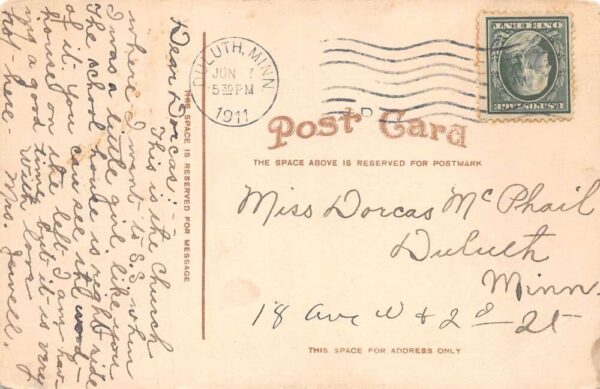 Dear Dorcas:-
This is the church
where I went to S.S. when
I was a little girl, like you.
The school house is right side
of it. You can see the wood-
house on the left. I am hav-
ing a good time but it is very
hot-here- With love
Mrs. Jewell.
THIS SPACE IS RESERVED FOR MESSAGE
DULUTH, MINN.
JUN 7
5:30 PM
1911
ONE CENT
U.S. POSTAGE
Post Card
THE SPACE ABOVE IS RESERVED FOR POSTMARK
Miss Dorcas McPhail
Duluth
Minn.
18 Ave W & 2d St
THIS SPACE FOR ADDRESS ONLY